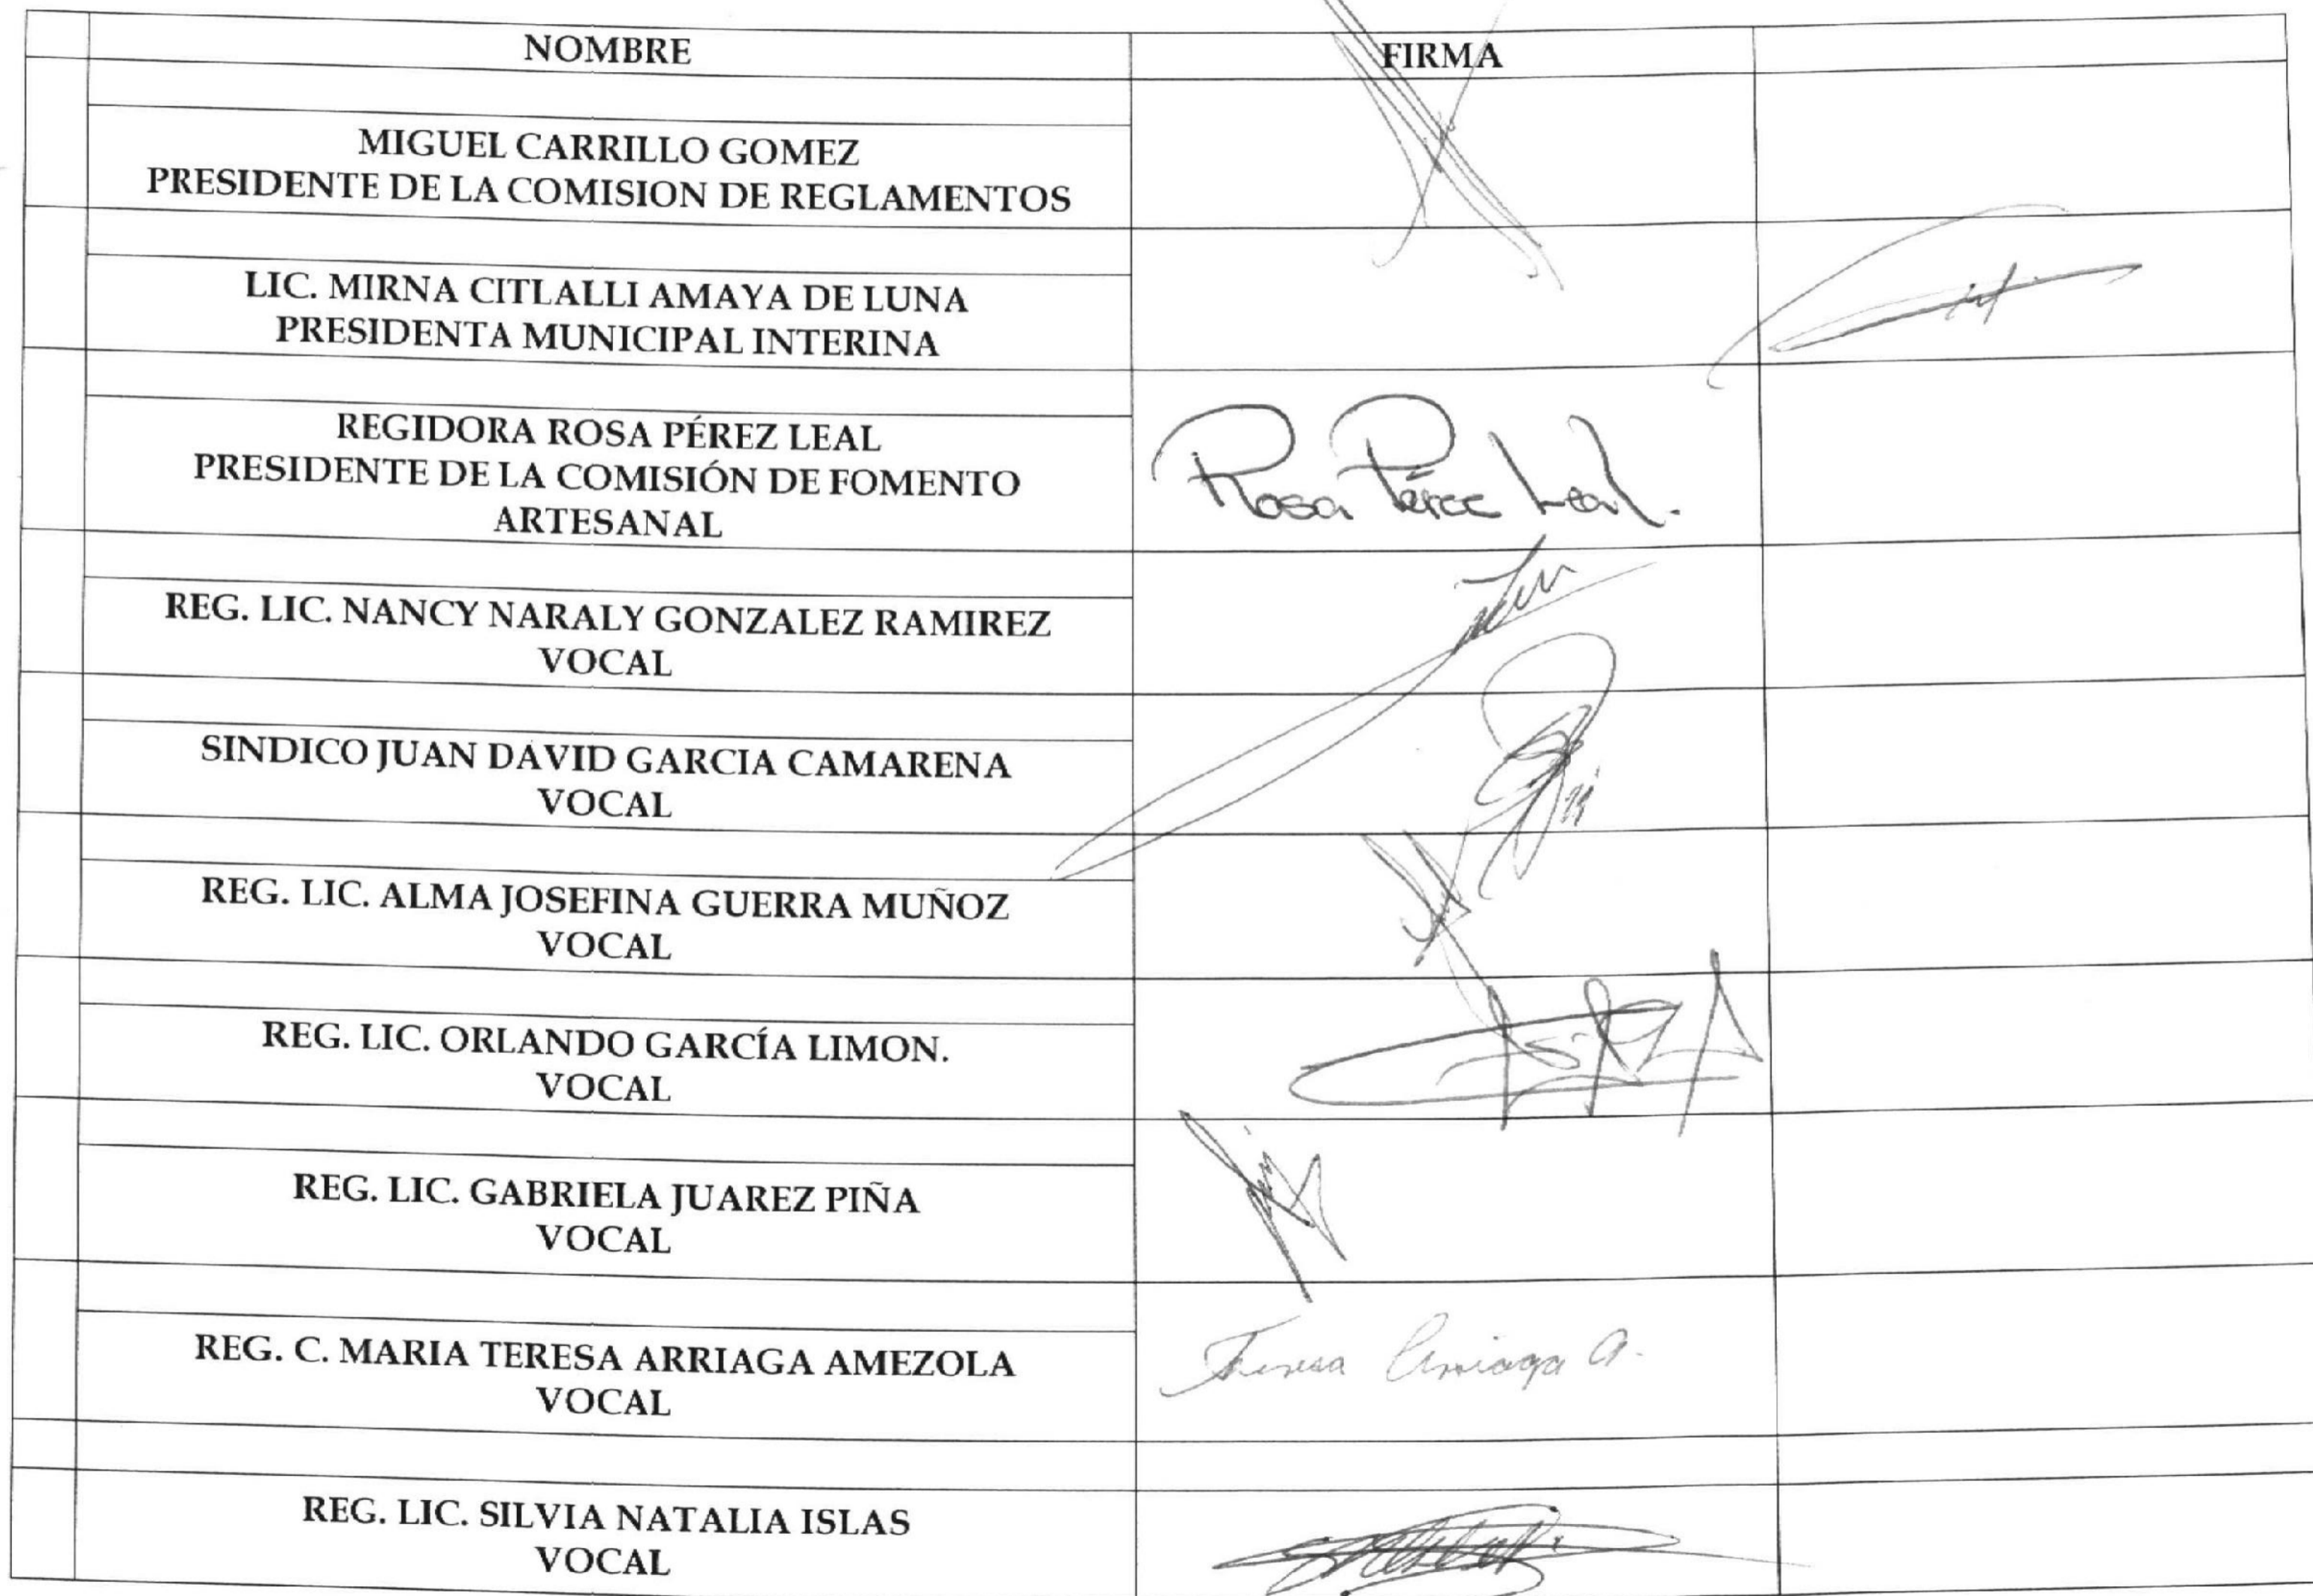 NOMBRE FIRMA
MIGUEL CARRILLO GOMEZ
PRESIDENTE DE LA COMISION DE REGLAMENTOS
LIC. MIRNA CITLALLI AMAYA DE LUNA
PRESIDENTA MUNICIPAL INTERINA
REGIDORA ROSA PÉREZ LEAL
PRESIDENTE DE LA COMISIÓN DE FOMENTO
ARTESANAL
Rosa Pérez Leal.
REG. LIC. NANCY NARALY GONZALEZ RAMIREZ
VOCAL
SINDICO JUAN DAVID GARCIA CAMARENA
VOCAL
REG. LIC. ALMA JOSEFINA GUERRA MUÑOZ
VOCAL
REG. LIC. ORLANDO GARCÍA LIMON.
VOCAL
REG. LIC. GABRIELA JUAREZ PIÑA
VOCAL
REG. C. MARIA TERESA ARRIAGA AMEZOLA
VOCAL
Teresa Arriaga A.
REG. LIC. SILVIA NATALIA ISLAS
VOCAL